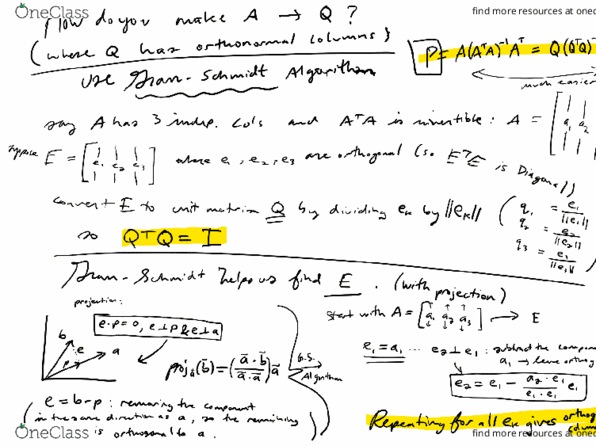 OneClass
find more resources at onec
How do you make A → Q ?
(where Q has orthonormal columns)
P = A(AᵀA)⁻¹Aᵀ = Q(QᵀQ)⁻
use Gram-Schmidt Algorithm
much easier
say A has 3 indep. cols and AᵀA is invertible: A = [a₁ a₂
suppose E = [e₁ e₂ e₃] where e₁, e₂, e₃ are orthogonal (so EᵀE is Diagonal)
convert E to unit matrix Q by dividing eₖ by ||eₖ|| (q₁ = e₁/||e₁||
q₂ = e₂/||e₂||
q₃ = e₃/||e₃||)
so QᵀQ = I
Gram-Schmidt helps us find E. (with projection)
projection:
start with A = [a₁ a₂ a₃] → E
e·p=0, e⊥p & e⊥a
b
a
p
proj_a(b⃗) = (a⃗·b⃗/a⃗·a⃗)a⃗
G.S. Algorithm
e₁ = a₁ ... e₂⊥e₁ : subtract the compone
a₁ → leave orthog
e₂ = e₁ - a₂·e₁/e₁·e₁ e₁
e = b-p : removing the component
in the same direction as a, so the remaining
is orthogonal to a.
Repeating for all eₖ gives orthog
OneClass
find more resources at onec